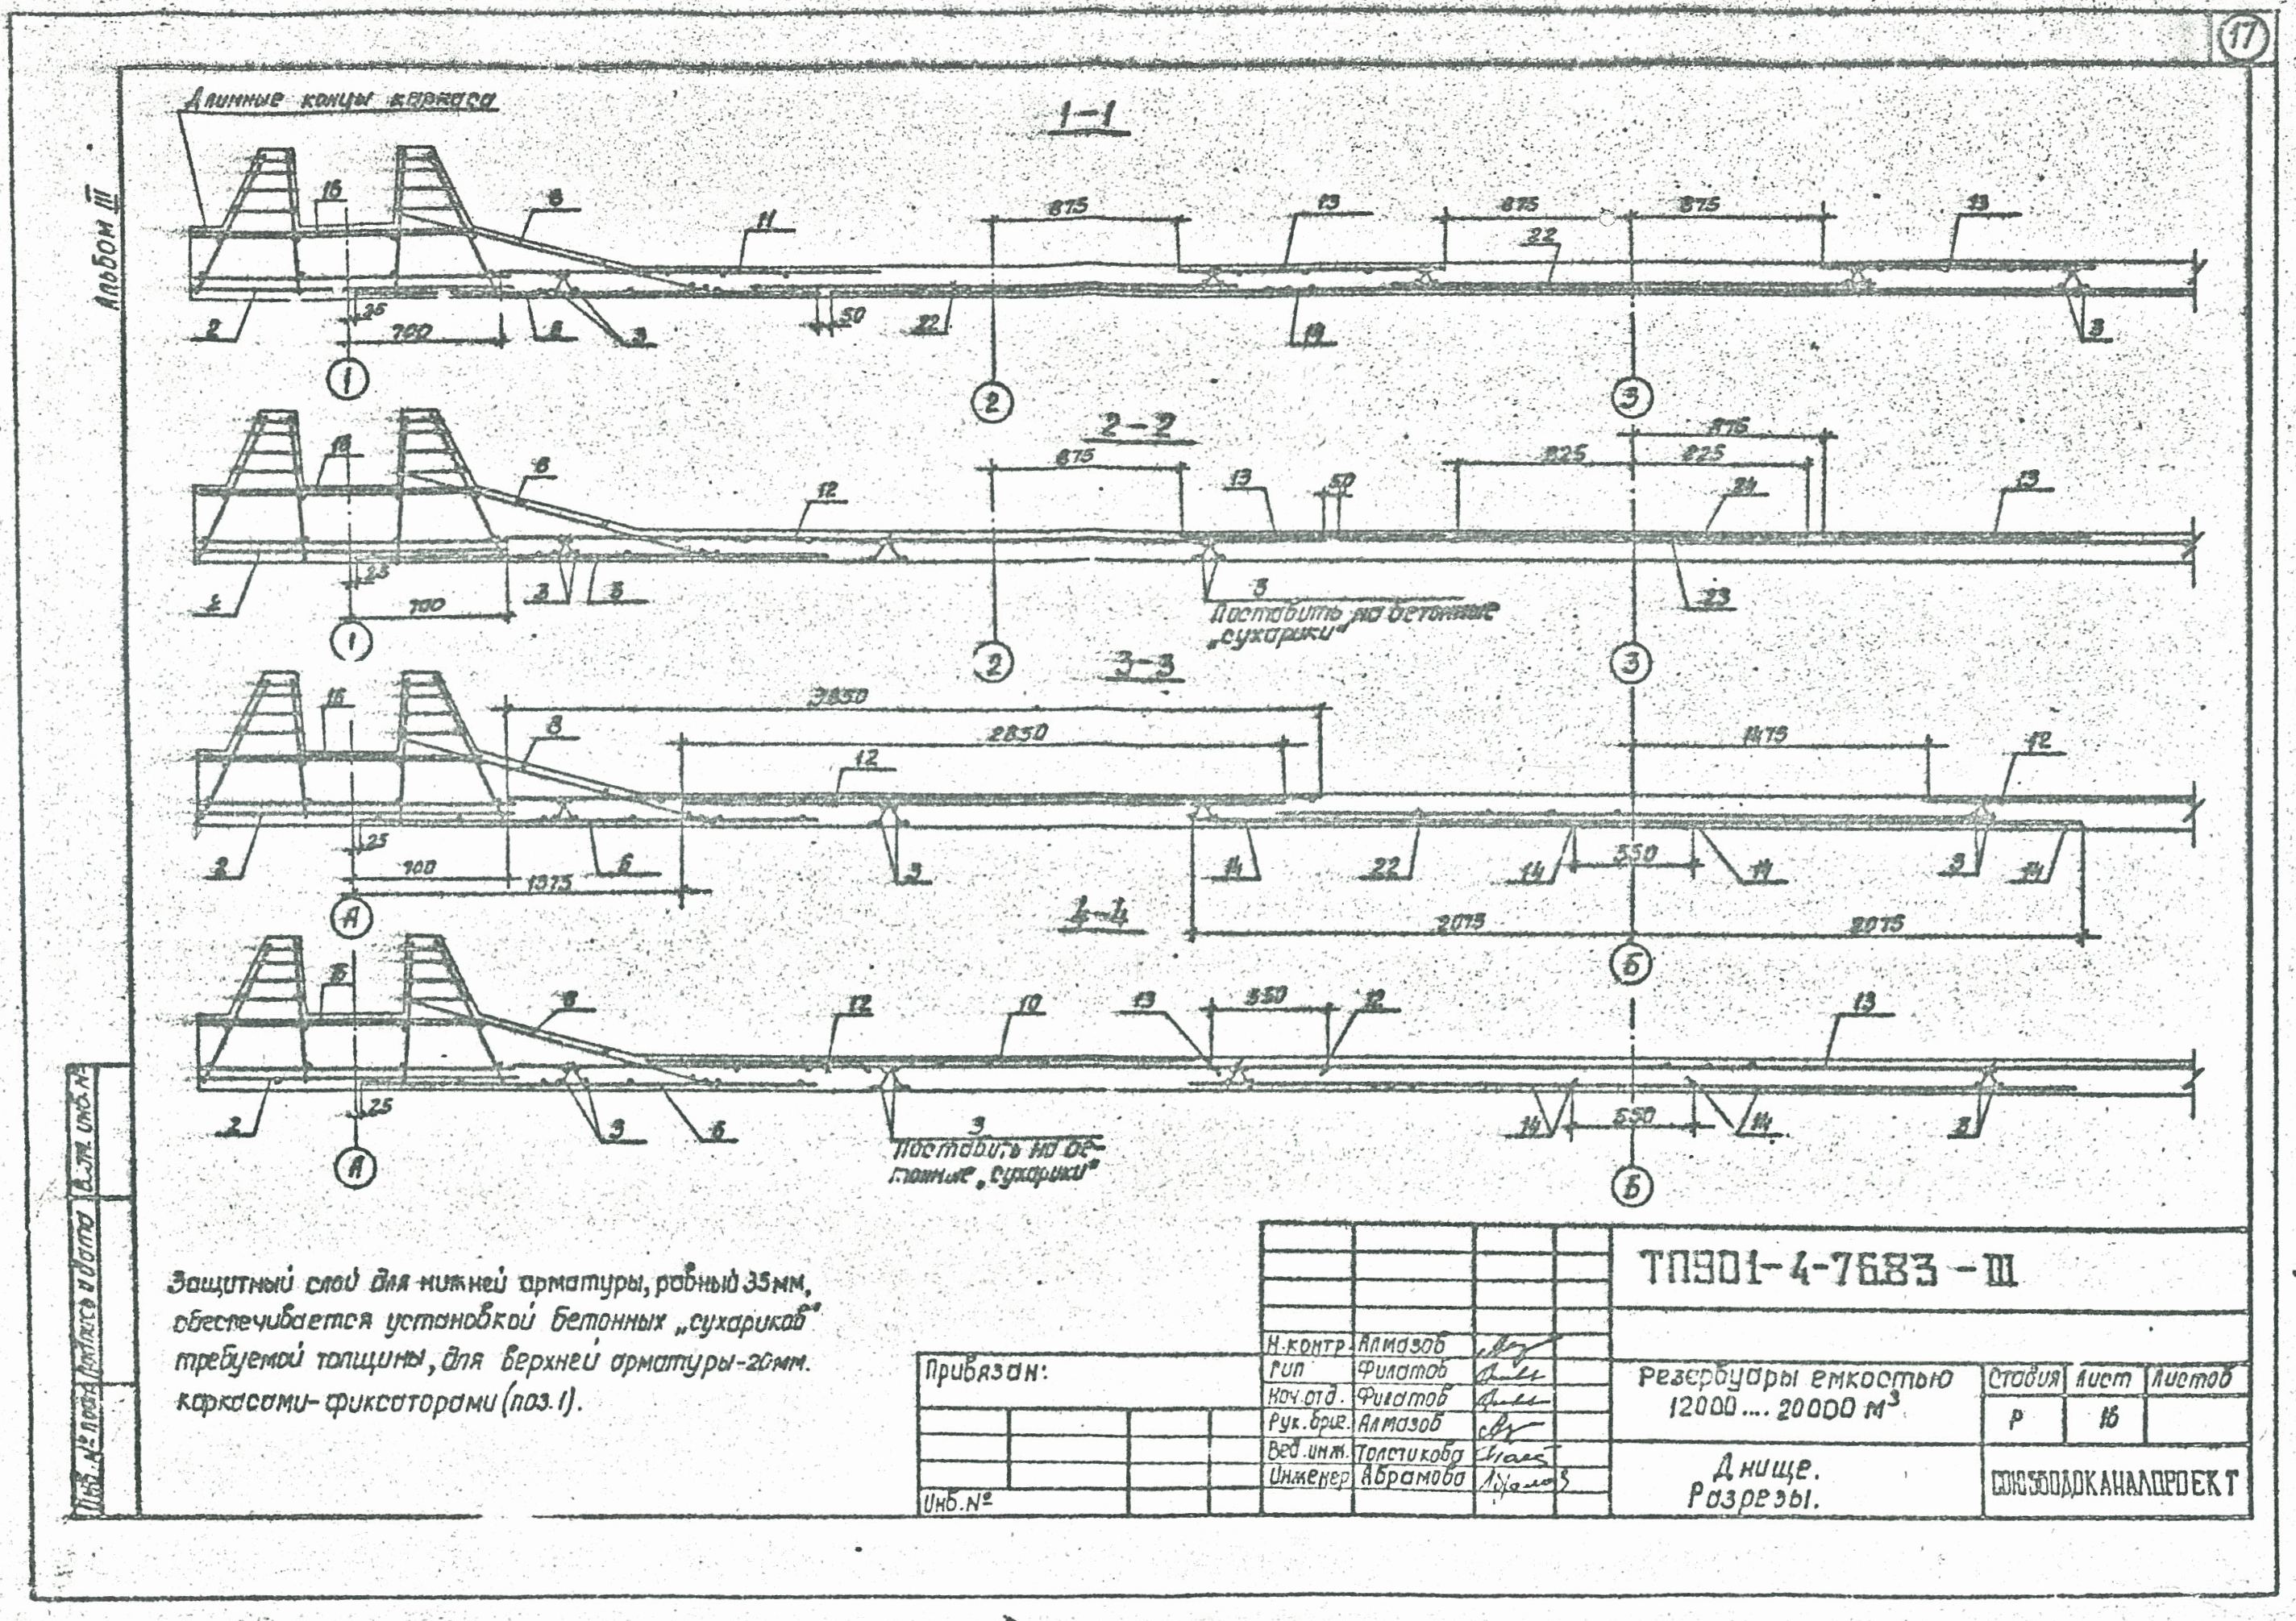 17
Альбом III
Длинные концы каркаса
1-1
16
8
11
875
13
875
875
13
22
2
25
700
50
22
3
1
2
3
2-2
875
18
8
12
875
13
50
825
825
24
13
25
700
3
3
Поставить на бетонные
„сухарики“
23
1
2
3
3-3
3850
16
8
2850
12
1475
12
2
25
700
1375
3
14
22
14
550
14
3
14
2075
2075
А
Б
4-4
8
12
10
13
550
12
13
2
25
3
3
Поставить на бе-
тонные „сухарики“
14
550
14
А
Б
Защитный слой для нижней арматуры, равный 35мм,
обеспечивается установкой бетонных „сухариков“
требуемой толщины, для верхней арматуры-20мм.
каркасами-фиксаторами (поз.1).
Привязан:
Инв.№
Н.контр. Алмазов
Гип Филатов
Нач.отд. Филатов
Рук.бриг. Алмазов
Вед.инж. Толстикова
Инженер Абрамова
ТП901-4-76.83-III
Резервуары емкостью
12000....20000 м³
Стадия Лист Листов
Р 16
Днище.
Разрезы.
СОЮЗВОДОКАНАЛПРОЕКТ
Инв.№ подл.
Подпись и дата
Взам. инв.№